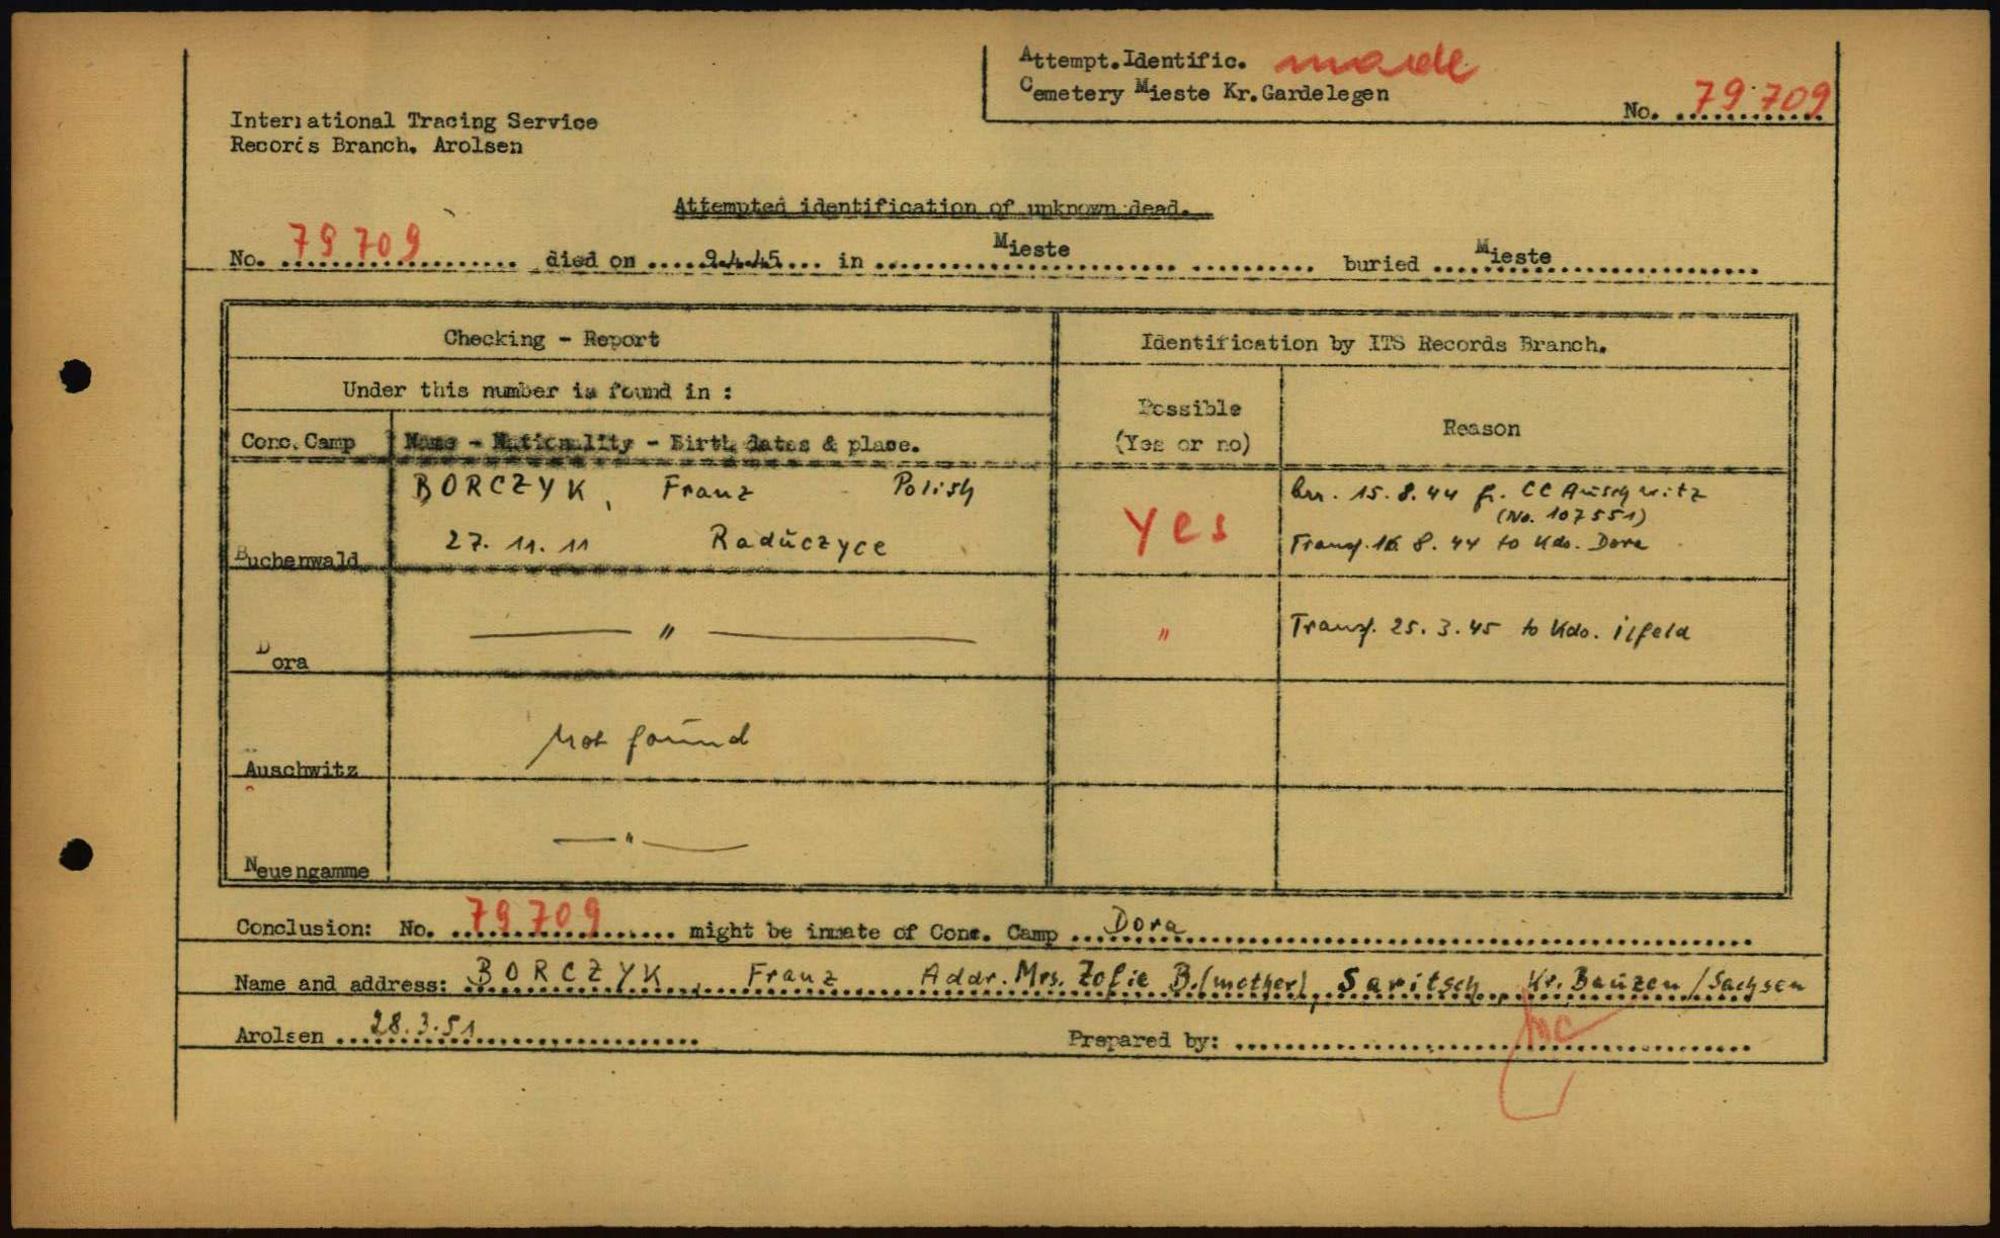 Attempt.Identific. made
Cemetery Mieste Kr.Gardelegen
No. 79 709
International Tracing Service
Records Branch. Arolsen
Attempted identification of unknown dead.
No. 79 709 died on 9.4.45 in Mieste buried Mieste
Checking - Report
Identification by ITS Records Branch.
Under this number is found in :
Possible
(Yes or no)
Reason
Conc. Camp
Name - Nationality - Birth dates & place.
BORCZYK, Franz Polish
27. 11. 11 Radŭczyce
Buchenwald
Yes
15. 8. 44 fr. CC Auschwitz
(No. 107551)
Transf. 16 8. 44 to Kdo. Dora
Dora
"
"
Transf. 25. 3. 45 to Kdo. ilfeld
Auschwitz
Not found
Neuengamme
"
Conclusion: No. 79 709 might be inmate of Conc. Camp Dora
Name and address: BORCZYK, Franz Addr. Mrs. Zofie B. (mother), Saritsch, Kr. Baŭzen / Sachsen
Arolsen 28.3.51
Prepared by: